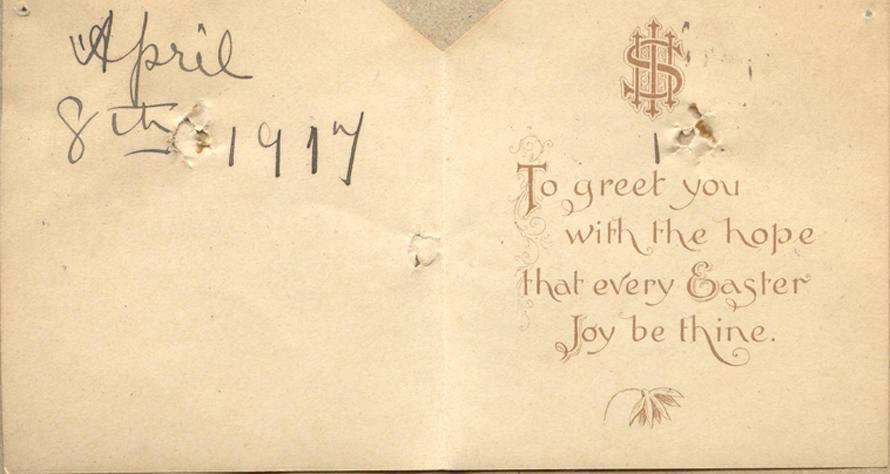 April
8th 1917
IHS
To greet you
with the hope
that every Easter
Joy be thine.